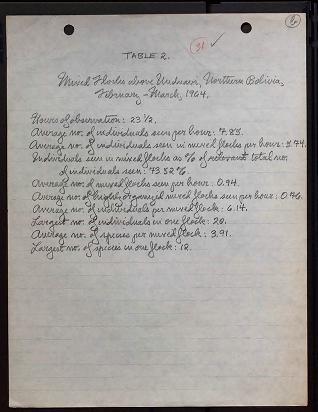 6
31 ✓
TABLE 2.
Mixed Flocks above Unduavi, Northern Bolivia,
February - March, 1964.
Hours of observation: 23 1/2.
Average no. of individuals seen per hour: 7.83.
Average no. of individuals seen in mixed flocks per hour: 5.74.
Individuals seen in mixed flocks as % of relevant total no.
of individuals seen: 73.52%.
Average no. of mixed flocks seen per hour: 0.94.
Average no. of highly organized mixed flocks seen per hour: 0.46.
Average no. of individuals per mixed flock: 6.14.
Largest no. of individuals in one flock: 20.
Average no. of species per mixed flock: 3.91.
Largest no. of species in one flock: 12.